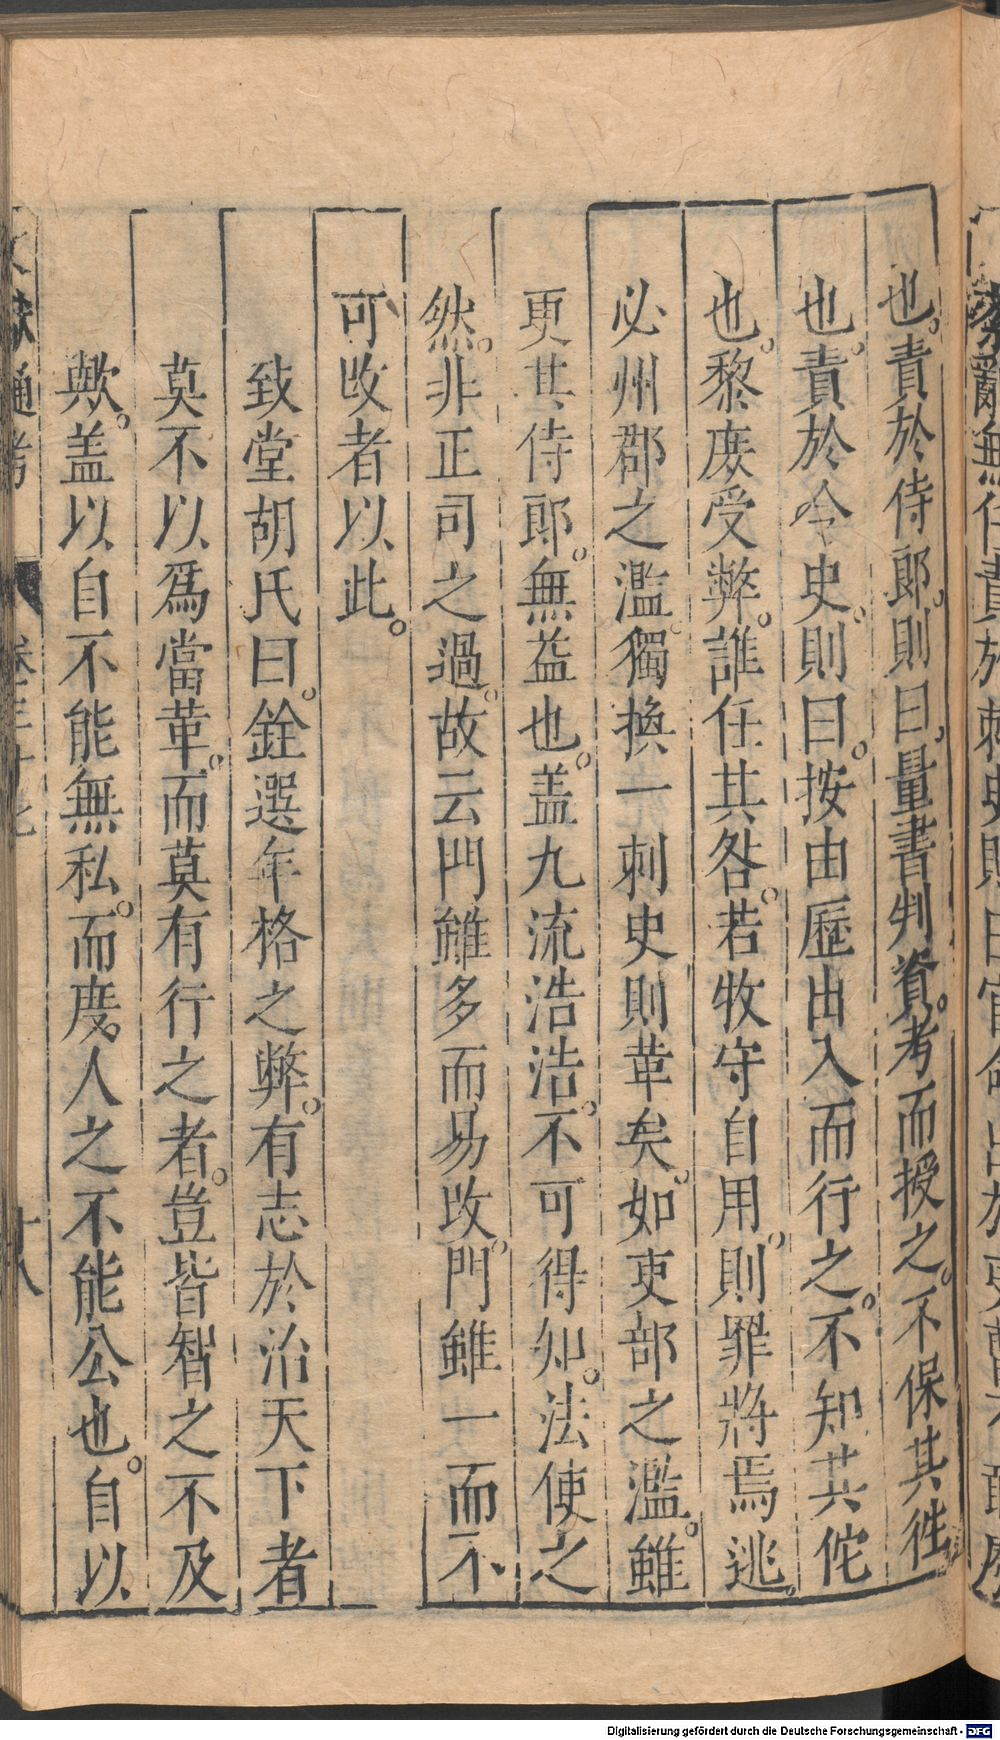 也。責於侍郎。則曰。量書判資。考而授之。不保其徃
也。責於令史。則曰。按由歷出入而行之。不知其侘
也。黎庻受弊。誰任其咎。若牧守自用。則罪將焉逃。
必州郡之濫。獨換一刺史則革矣。如吏部之濫。雖
更其侍郎。無益也。盖九流浩浩。不可得知。法使之
然。非正司之過。故云門雖多而易改。門雖一而不
可改者以此。
致堂胡氏曰。銓選年格之弊。有志於治天下者
莫不以爲當革。而莫有行之者。豈皆智之不及
歟。盖以自不能無私。而度人之不能公也。自以
文獻通考 卷三十七 十八
Digitalisierung gefördert durch die Deutsche Forschungsgemeinschaft - DFG